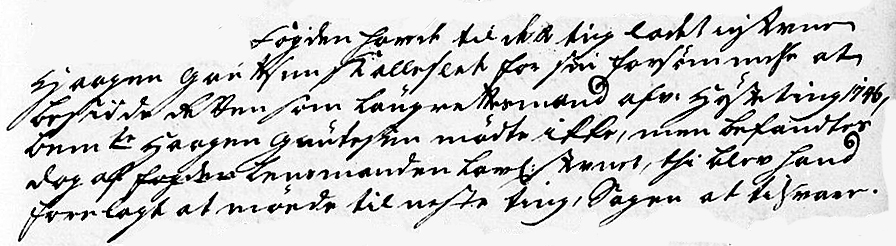 Fogden hafde til dette ting ladet citere
Haagen Gautesen Kalleslet for sin forsømmelse at
besidde Retten som Laugrettesmand afv. Høsteting 1746,
bem.te Haagen Gautesen mødte icke, men befandtes
dog af fogder Lensmanden lovl: stevnet, thi blev hand
forelagt at møde til neste ting, Sagen at tilsvare.